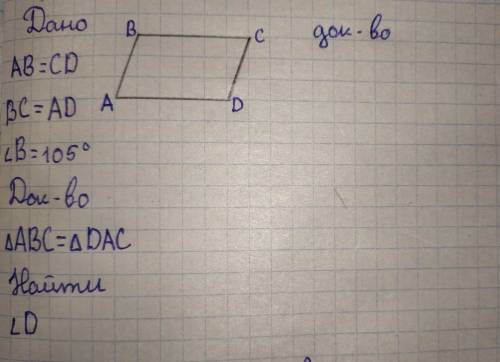 Дано
B
C
док-во
AB=CD
BC=AD
A
D
∠B=105°
Док-во
△ABC=△DAC
Найти
∠D